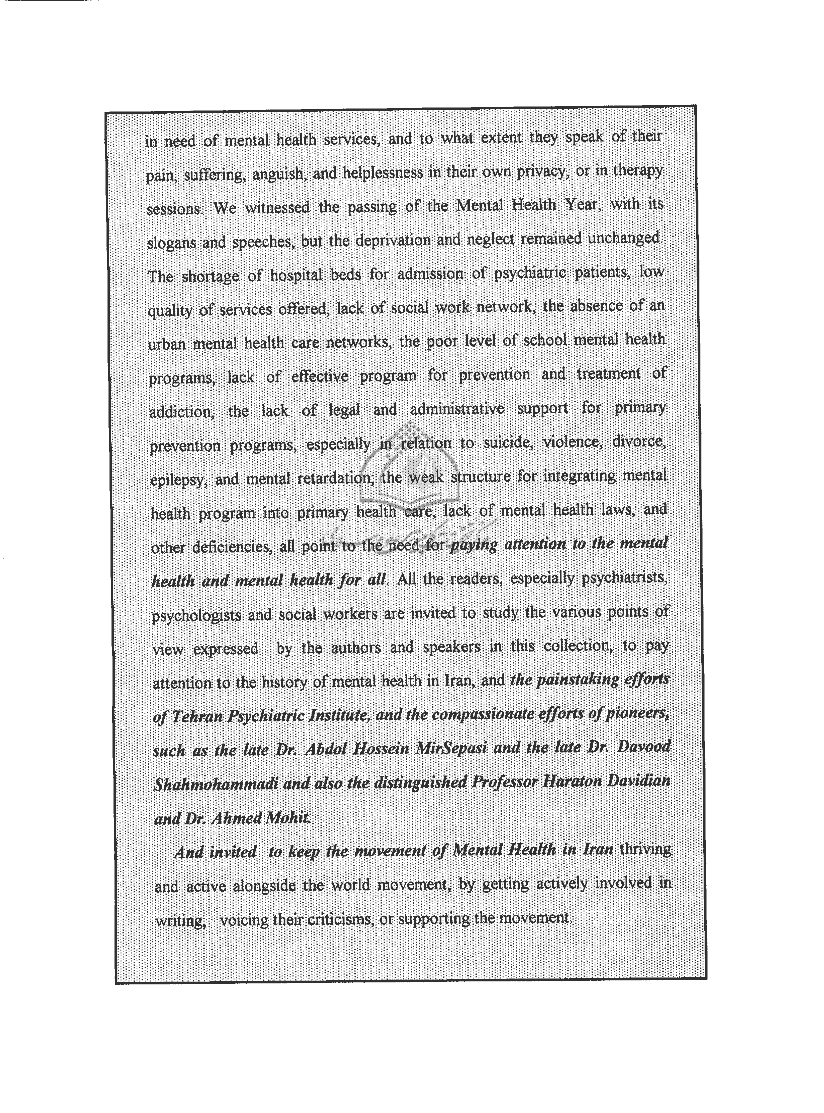 in need of mental health services, and to what extent they speak of their
pain, suffering, anguish, and helplessness in their own privacy, or in therapy
sessions. We witnessed the passing of the Mental Health Year, with its
slogans and speeches, but the deprivation and neglect remained unchanged.
The shortage of hospital beds for admission of psychiatric patients, low
quality of services offered, lack of social work network, the absence of an
urban mental health care networks, the poor level of school mental health
programs, lack of effective program for prevention and treatment of
addiction, the lack of legal and administrative support for primary
prevention programs, especially in relation to suicide, violence, divorce,
epilepsy, and mental retardation, the weak structure for integrating mental
health program into primary health care, lack of mental health laws, and
other deficiencies, all point to the need for paying attention to the mental
health and mental health for all. All the readers, especially psychiatrists,
psychologists and social workers are invited to study the various points of
view expressed by the authors and speakers in this collection, to pay
attention to the history of mental health in Iran, and the painstaking efforts
of Tehran Psychiatric Institute, and the compassionate efforts of pioneers,
such as the late Dr. Abdol Hossein MirSepasi and the late Dr. Davood
Shahmohammadi and also the distinguished Professor Haraton Davidian
and Dr. Ahmed Mohit.
And invited to keep the movement of Mental Health in Iran thriving
and active alongside the world movement, by getting actively involved in
writing, voicing their criticisms, or supporting the movement.